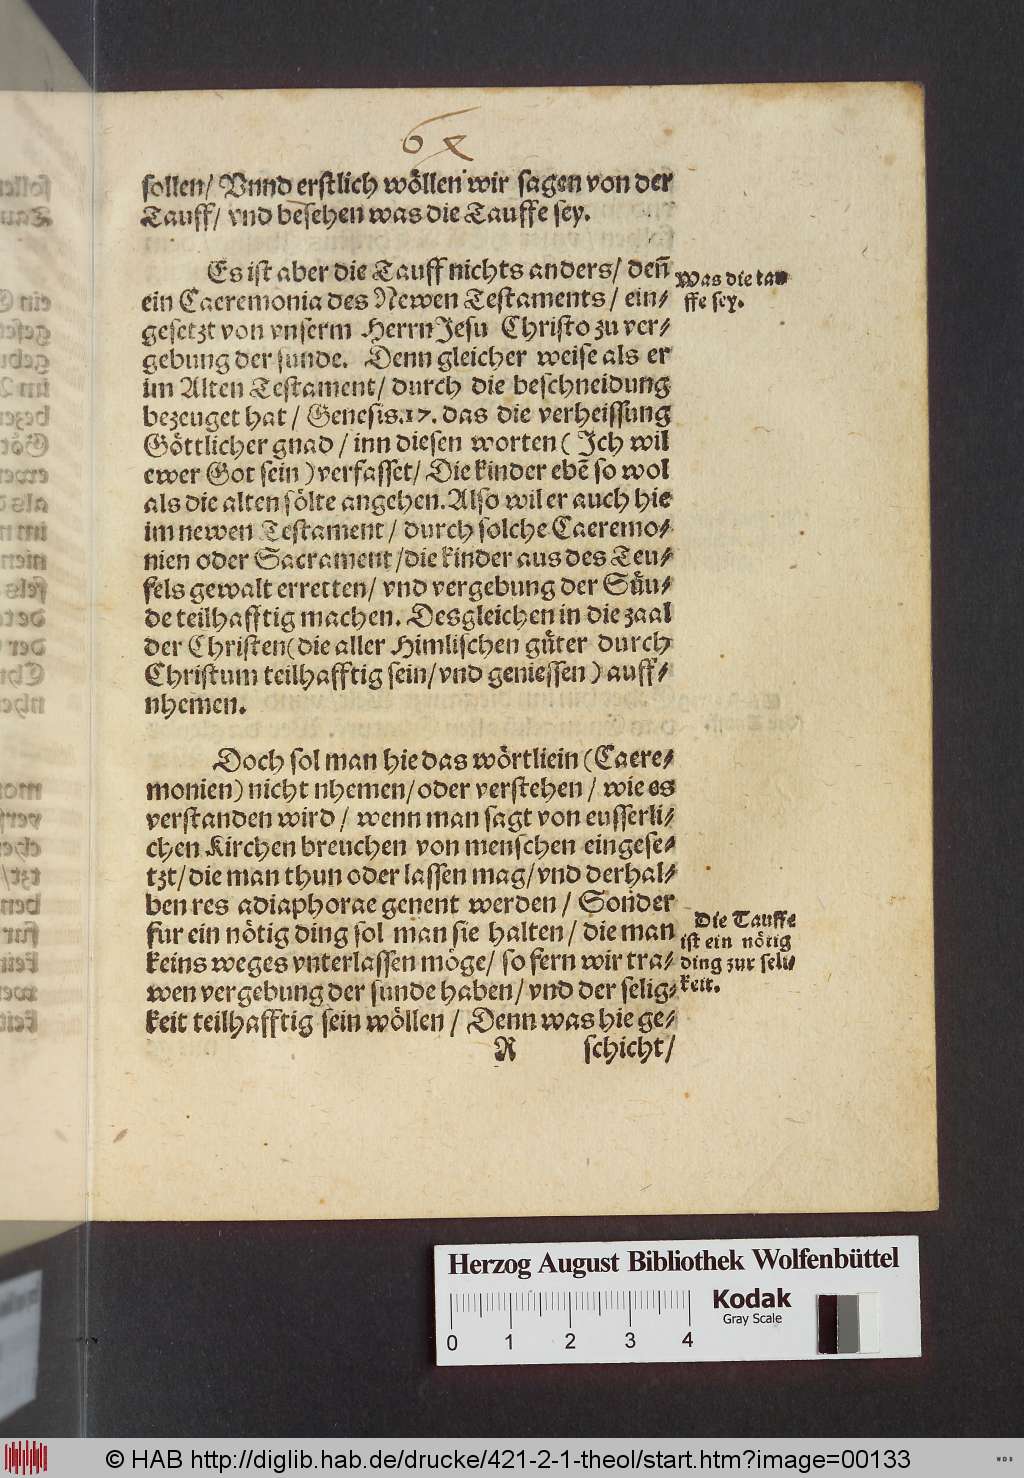 sollen/ Vnnd erstlich wöllen wir sagen von der
Tauff/ vnd besehen was die Tauffe sey.
Es ist aber die Tauff nichts anders/ deñ
ein Caeremonia des Newen Testaments/ ein⸗
gesetzt von vnserm Herrn Jesu Christo zu ver⸗
gebung der sunde. Denn gleicher weise als er
im Alten Testament/ durch die beschneidung
bezeuget hat/ Genesis.17. das die verheissung
Göttlicher gnad/ inn diesen worten (Ich wil
ewer Got sein) verfasset/ Die kinder ebē so wol
als die alten sölte angehen. Also wil er auch hie
im newen Testament/ durch solche Caeremo⸗
nien oder Sacrament/ die kinder aus des Teu⸗
fels gewalt erretten/ vnd vergebung der Sün⸗
de teilhafftig machen. Desgleichen in die zaal
der Christen (die aller Himlischen güter durch
Christum teilhafftig sein/ vnd geniessen) auff⸗
nhemen.
Was die tau
ffe sey.
Doch sol man hie das wörtliein (Caere⸗
monien) nicht nhemen/ oder verstehen/ wie es
verstanden wird/ wenn man sagt von eusserli⸗
chen Kirchen breuchen von menschen eingese⸗
tzt/ die man thun oder lassen mag/ vnd derhal⸗
ben res adiaphorae genent werden/ Sonder
fur ein nötig ding sol man sie halten/ die man
keins weges vnterlassen möge/ so fern wir tra⸗
wen vergebung der sunde haben/ vnd der selig⸗
keit teilhafftig sein wöllen/ Denn was hie ge⸗
Die Tauffe
ist ein nötig
ding zur seli⸗
keit.
R schicht/
Herzog August Bibliothek Wolfenbüttel
Kodak
Gray Scale
0 1 2 3 4
© HAB http://diglib.hab.de/drucke/421-2-1-theol/start.htm?image=00133